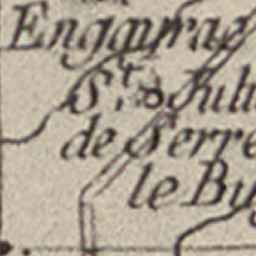 Engayrac
St. Juli
de Serre
le Bu